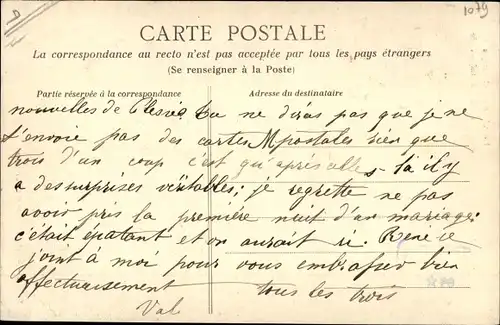 1079
CARTE POSTALE
La correspondance au recto n'est pas acceptée par tous les pays étrangers
(Se renseigner à la Poste)
Partie réservée à la correspondance
Adresse du destinataire
nouvelles de tu ne diras pas que je ne
t'envoie pas des cartes postales rien que
trois d'un coup c'est qu'après là il y
a des surprises véritables; je regrette ne pas
avoir pris la première nuit d'un mariage;
c'était épatant et on aurait ri. René se
joint à moi pour vous embrasser bien
affectueusement tous les trois
Val